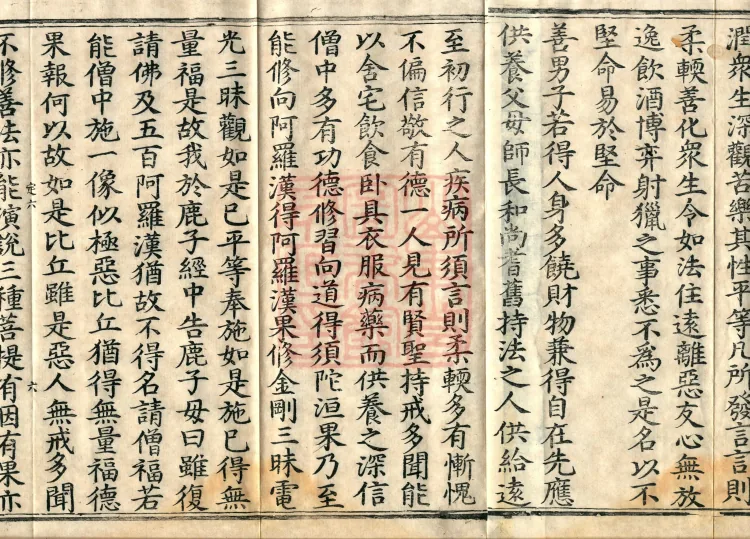 潤衆生深觀苦樂其性平等凡所發言言則
柔輭善化衆生令如法住遠離惡友心無放
逸飲酒博弈射獵之事悉不為之是名以不
堅命易於堅命
善男子若得人身多饒財物兼得自在先應
供養父母師長和尚耆舊持法之人供給遠
至初行之人疾病所須言則柔輭多有慚愧
不偏信敬有德一人見有賢聖持戒多聞能
以舍宅飲食卧具衣服病藥而供養之深信
僧中多有功德修習向道得須陀洹果乃至
能修向阿羅漢得阿羅漢果修金剛三昧電
光三昧觀如是已平等奉施如是施已得無
量福是故我於鹿子經中告鹿子母曰雖復
請佛及五百阿羅漢猶故不得名請僧福若
能僧中施一像似極惡比丘猶得無量福德
果報何以故如是比丘雖是惡人無戒多聞
定六
六
不修善法亦能演說三種菩提有因有果亦